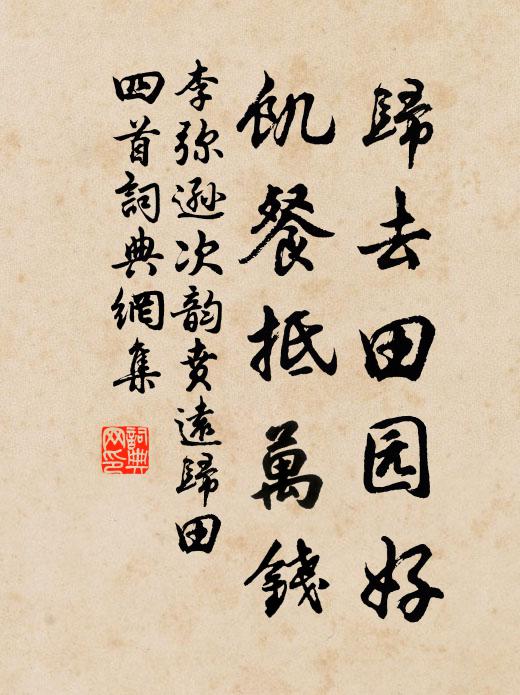 歸去田园好
飢餐抵萬錢
李弥遜次韵賁遠歸田
四首詞典網集
詞典網印